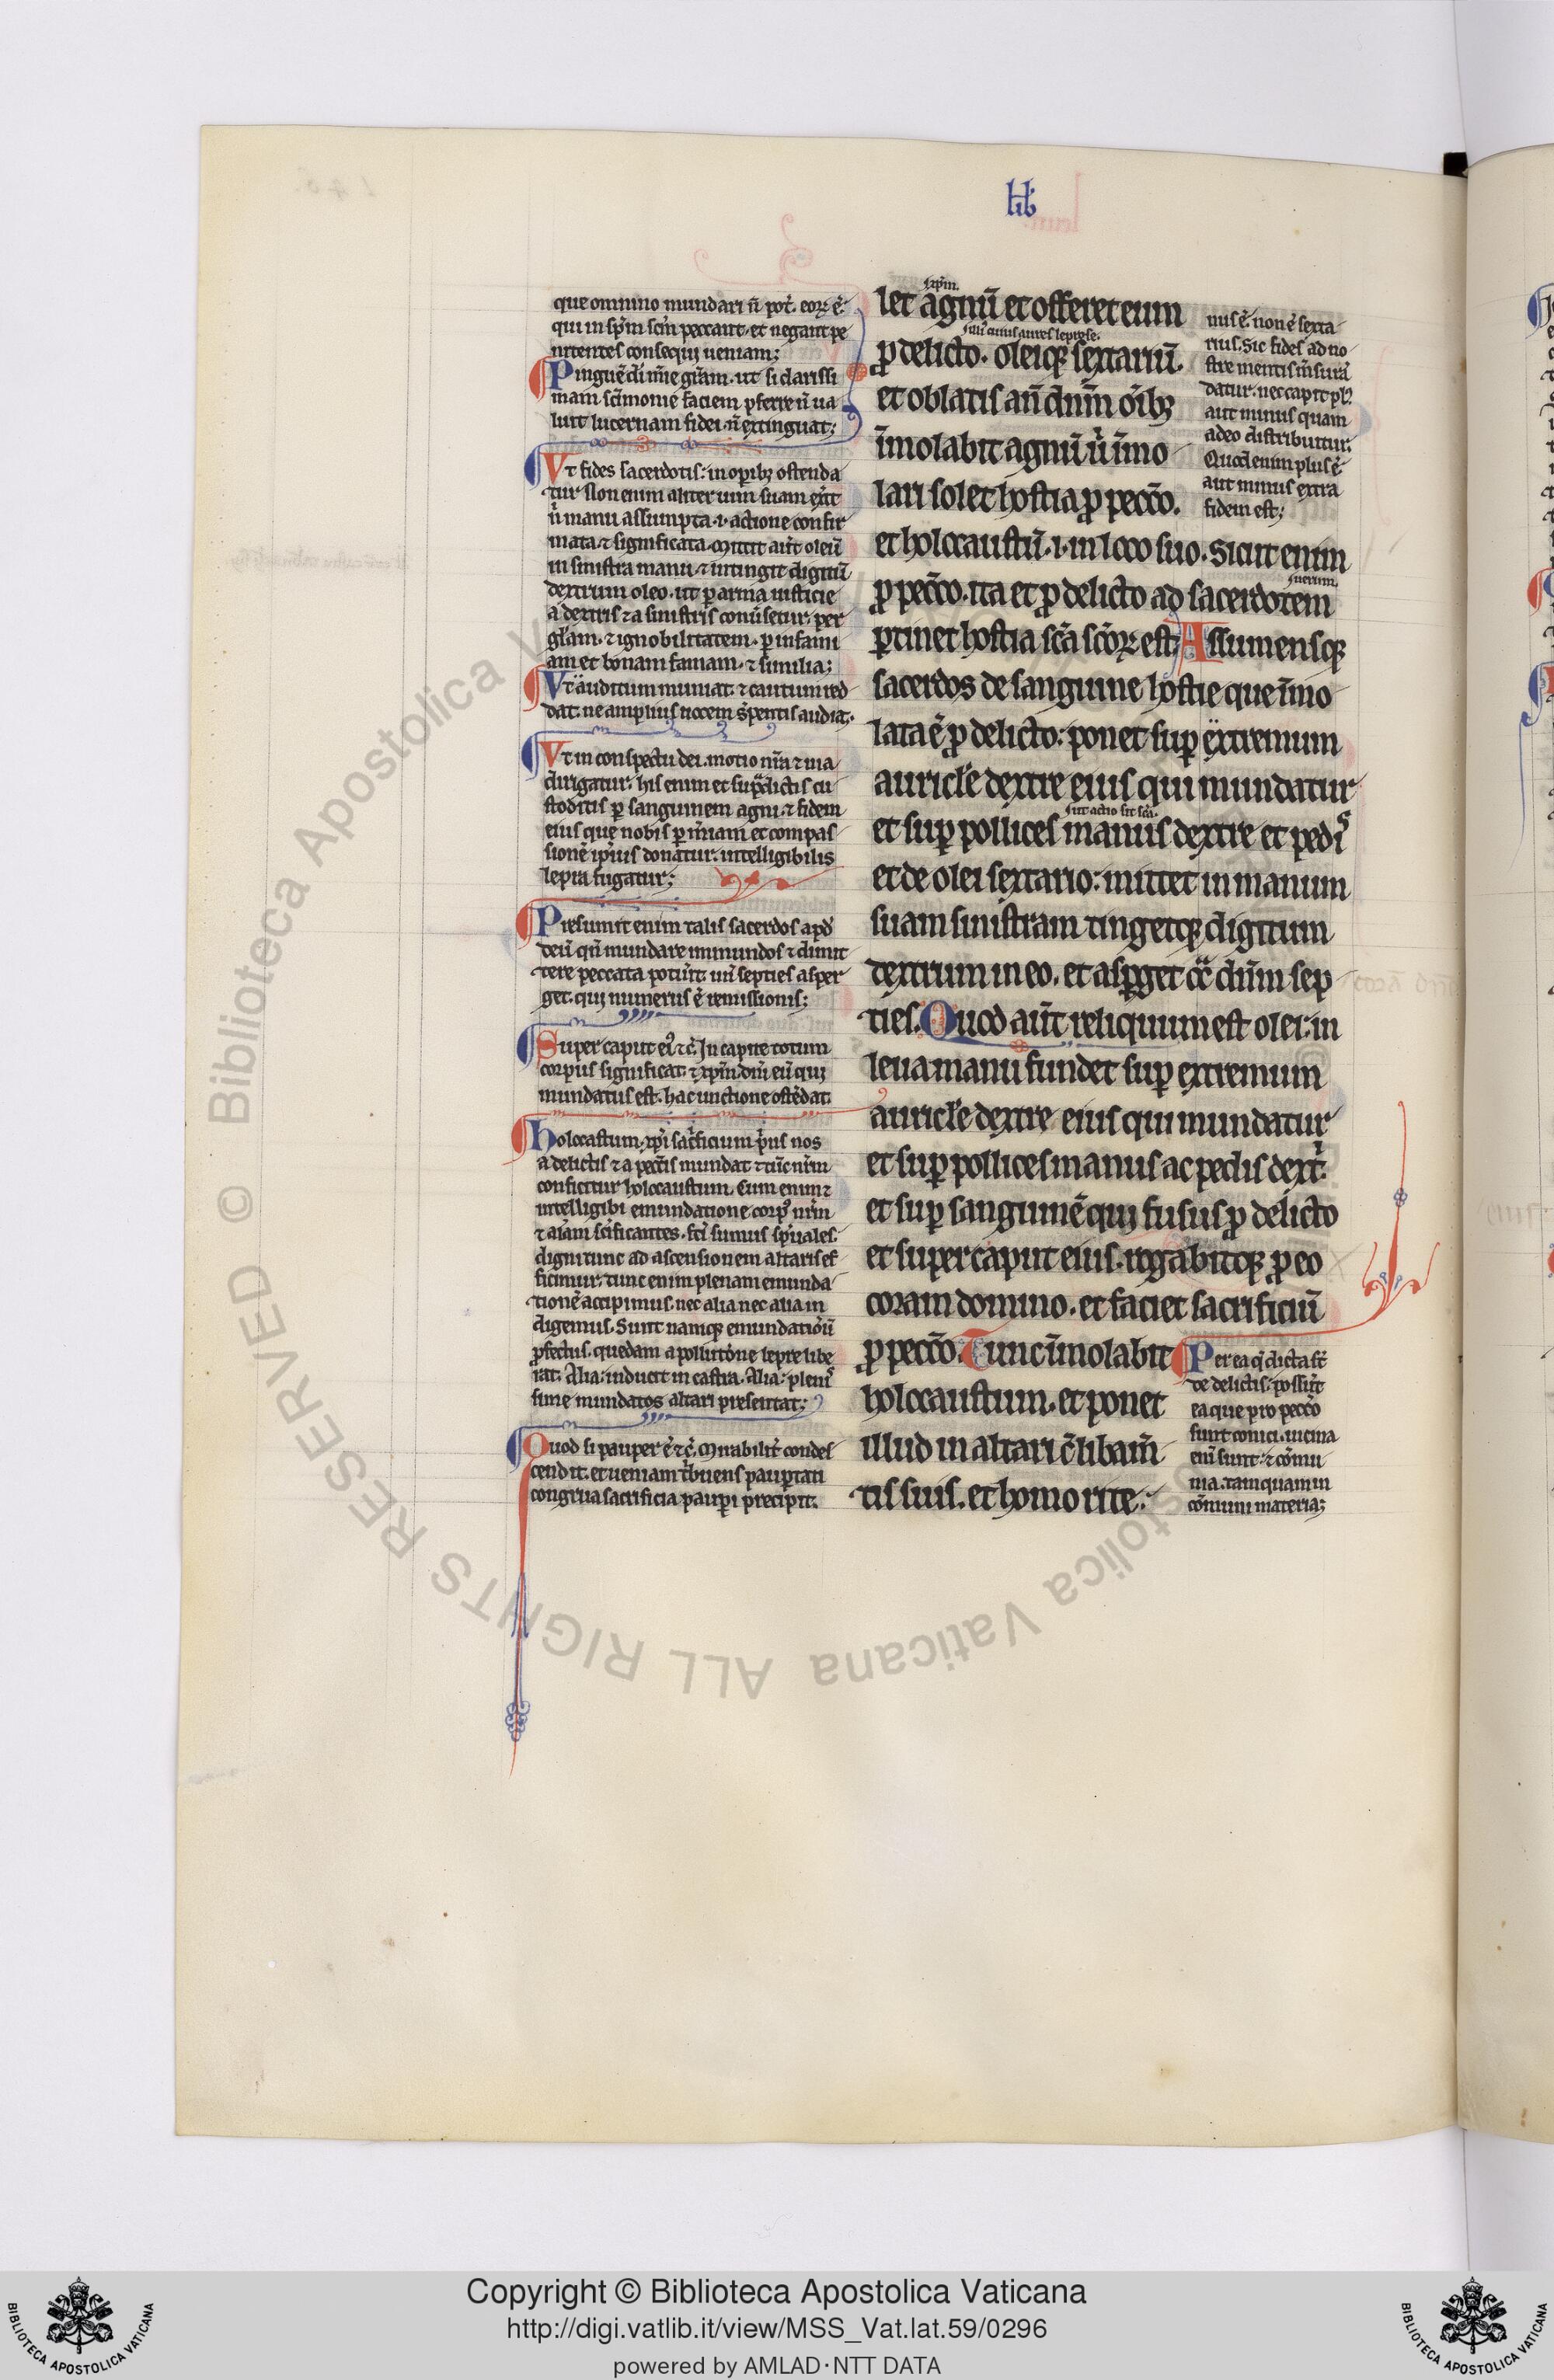 lib̾
que omnino mundari ñ pot̾. eoꝝ ẽ.
qui in sp̃m sc̃m peccant. et negant pe
nitentes consequi ueniam;
Pinguẽ
mam sc̃imonie faciem p̲ferre ñ ua
luit lucernam fidei ñ extinguat;
Vt fides sacerdotis: in op̲ibꝫ ostenda
tur Non enim aliter uim suam
ñ manu assumpta .i. actione confir
mata ⁊ significata. Mittit aut̃ oleũ
in sinistra manu ⁊ intingit digitũ
dextrum oleo. ut p̲ arma iusticie
a dextris ⁊ a sinistris per
gl̃am. ⁊ ignobilitatem. p̲ infami
am et bonam famam. ⁊ similia;
Vt auditum muniat. ⁊ cautum red
dat. ne amplius uocem s̾pentis audiat.
Vt in conspectu dei. motio nr̃a ⁊ uia
dirigatur. his enim et sup̲dictis cu
stoditis p̲ sanguinem agni. ⁊ fidem
eius que nobis p̲ et compas
sionẽ ipsius donatur. intelligibilis
lepra fugatur;
Presumit enim talis sacerdos apd̾
deũ qñ mundare inmundos ⁊ dimit
tere peccata septies asper
get. qui numerus ẽ remissionis;
Super caput ei9 ⁊c̃. In capite totum
corpus significat. ⁊ xp̃m eũ qui
mundatus est. hac unctione ostẽdat.
Holocaustum. xp̃i sac̾ficium p̾us nos
a delictis ⁊ a pecc̃is mundat ⁊ tũc nr̃m
conficitur holocaustum. Cum enim ⁊
intelligibi emundatione corp9 nr̃m
⁊ aĩam sc̃ificantes. sumus sp̃uales.
digni tunc ad ascensionem altaris ef
ficimur. tunc enim plenam emunda
tionẽ accipimus. nec alia nec alia in
digemus. Sunt namqꝫ emundationũ
p̲fectus. quedam a pollutione lepre libe
rat. Alia: inducit in castra. Alia: pleniſ
sime mundatos altari presentat;
Quod si pauper ẽ ⁊c̃. Mirabilit̾ condes
cendit. et ueniam t̾buens paup̲tati
congrua sacrificia paup̲i precipit.
xp̃m.
let agnũ et offeret eum
p̲ delicto. oleiqꝫ sextariũ.
et oblatis añ dñm õibꝫ
ĩmolabit agnũ u̾ ĩmo
lari solet hostia p̲ pecc̃o.
et holocaustũ .i. in loco suo. Sicut enim
uerum.
p̲ pecc̃o. ita et p̲ delicto ad sacerdotem
p̲tinet hostia sc̃a sc̃oꝝ est; Assumensqꝫ
sacerdos de sanguine hostie que ĩmo
lata ẽ p̲ delicto: ponet sup̲ extremum
auricl̃e dextre eius qui mundatur
ut actio sit sc̃a.
et sup̲ pollices manus dextre et pediſ
et de olei sextario: mittet in manum
suam sinistram tingetqꝫ digitum
dextrum in eo. et asp̲get dñm sep
ties. Quod aut̃ reliquum est olei. in
leua manu fundet sup̲ extremum
auricl̃e dextre eius qui mundatur
et sup̲ pollices manus ac pedis dext̾.
et sup̲ sanguinẽ qui fusus p̲ delicto
et super caput eius. rogabitqꝫ p̲ eo
coram domino. et faciet sacrificiũ
p̲ pecc̃o. Tunc ĩmolabit
holocaustum. et ponet
illud in altari c̃ libam̃
tis suis. et homo rite.
nus ẽ. non ẽ sexta
rius. Sic fides ad no
stre mentis m̃surã
datur. nec capit pl9
aut minus quam
adeo distribuitur.
Quod enim plus ẽ
aut minus extra
fidem est;
Per ea q̃ dicta st̃
de delictis. possũt
ea que pro pecc̃o
sunt conici. uicina
eni̾ sunt. ⁊ cõmu
nia. tamquam in
cõmuni materia;
Biblioteca Apostolica Vaticana ALL RIGHTS RESERVED ©
Copyright © Biblioteca Apostolica Vaticana
http://digi.vatlib.it/view/MSS_Vat.lat.59/0296
powered by AMLAD·NTT DATA
BIBLIOTECA APOSTOLICA VATICANA
BIBLIOTECA APOSTOLICA VATICANA